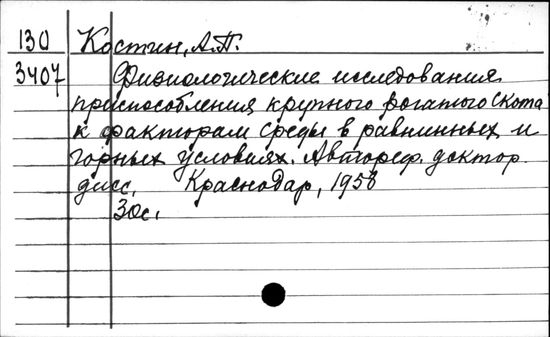 130 Костин, А.П.
3407 Физиологические исследования
приспособления крупного рогатого скота
к факторам среды в равнинных и
горных условиях. Автореф. доктор.
дисс. Краснодар, 1958
30с.